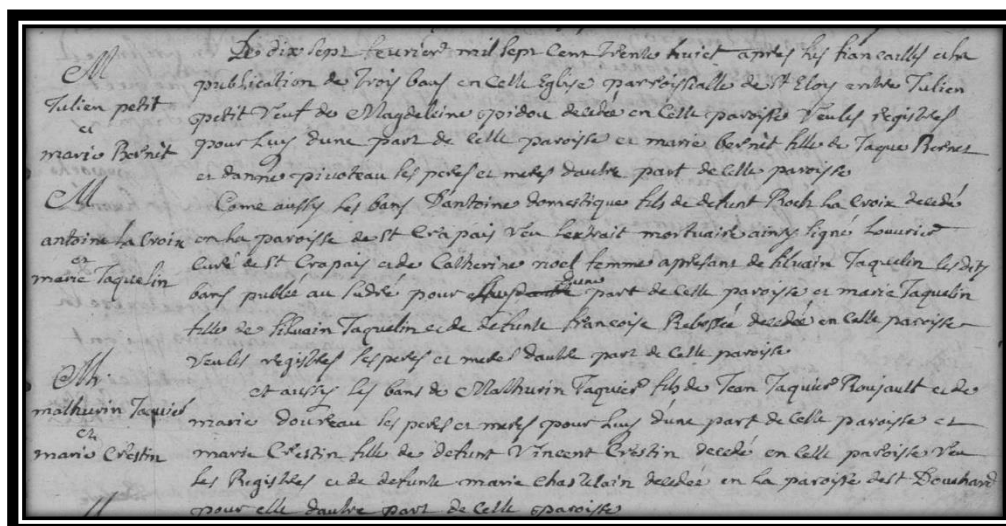 M
Julien petit
et
marie Bernet
M
antoine la Croix
et
marie Jaquelin
M
mathurin Jaquier
et
marie Crestin
Le dix sept feuvrier mil sept Cent trente huict apres les fiancailles et la
publication de Trois bans en Cette Eglise parroissialle de St Eloy entre Julien
petit Veuf de Magdeleine pidou decedée en Cette paroisse Veu les registres
pour Luy d'une part de Cette paroisse et marie bernet fille de Jaque Bernet
et d'anne pivoteau ses peres et meres d'autre part de Cette paroisse
Come aussy les bans D'antoine domestique fils de defunt Roch La Croix decedé
en la paroisse de St Crapais Veu lextrait mortuaire ainsy signé Louvrier
Curé de St Crapais et de Catherine noel femme apresant de silvain Jaquelin les dits
bans publée au pour d'une part de Cette paroisse et marie Jaquelin
fille de silvain Jaquelin et de defunte francoise decedée en Cette paroisse
Veu les registres ses peres et meres d'autre part de Cette paroisse
et aussy les bans de Mathurin Jaquier fils de Jean Jaquier Roujault et de
marie doureau ses peres et meres pour Luy d'une part de Cette paroisse et
marie Crestin fille de defunt Vincent Crestin decedé en Cette paroisse Veu
les Registres et de defunte marie Chastelain decedée en la paroisse de St Douchard
pour elle d'autre part de Cette paroisse